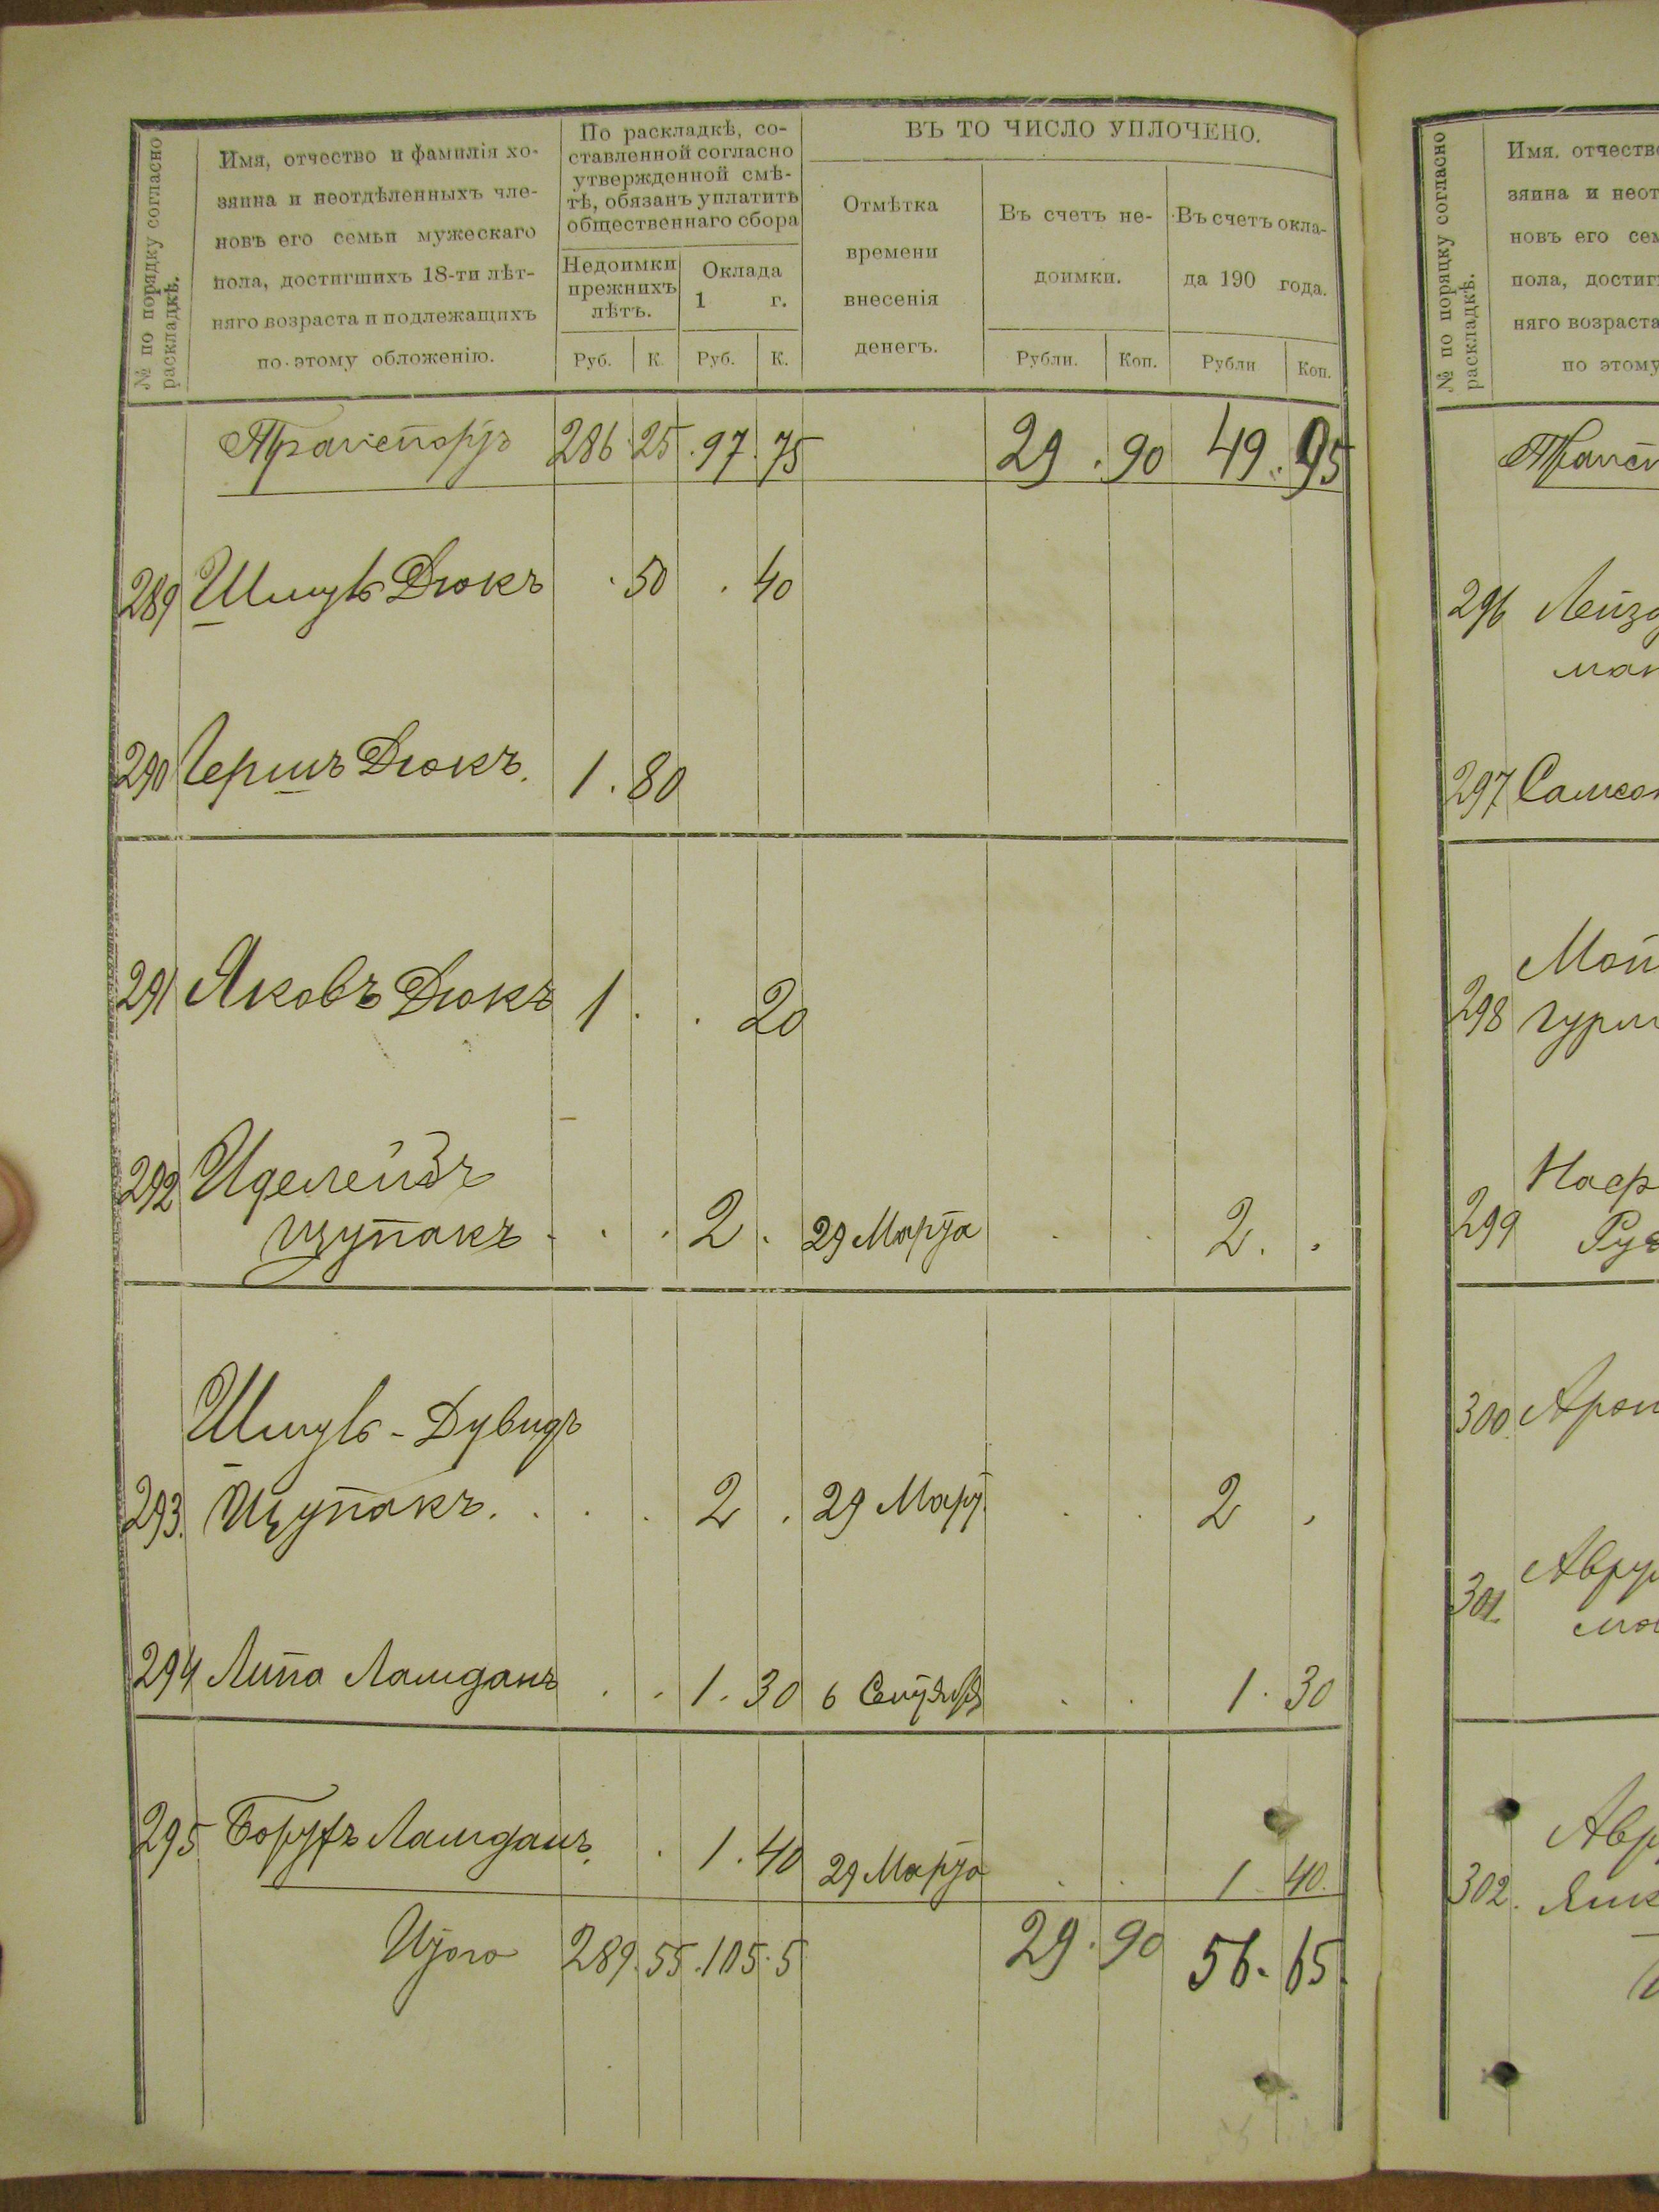 № по порядку согласно
раскладкѣ.
Имя, отчество и фамилія хо-
зяина и неотдѣленныхъ чле-
новъ его семьи мужескаго
пола, достигшихъ 18-ти лѣт-
няго возраста и подлежащихъ
по этому обложенію.
По раскладкѣ, со-
ставленной согласно
утвержденной смѣ-
тѣ, обязанъ уплатить
общественнаго сбора
Недоимки
прежнихъ
лѣтъ.
Оклада
1 г.
Руб. К. Руб. К.
ВЪ ТО ЧИСЛО УПЛОЧЕНО.
Отмѣтка
времени
внесенія
денегъ.
Въ счетъ не-
доимки.
Въ счетъ окла-
да 190 года.
Рубли. Коп. Рубли Коп.
Транспортъ 286 25 97 75 29 90 49 95
289 Шмуль Дюкъ 50 40
290 Гершъ Дюкъ. 1 80
291 Яковъ Дюкъ 1 20
292 Иделейзъ
Щупакъ 2 29 Марта 2
Шмуль-Дувидъ
293. Щупакъ. 2 29 Март. 2
294 Липа Ламданъ 1 30 6 Сентября 1 30
295 Борухъ Ламданъ. 1 40 29 Марта 1 40
Итого 289 55 105 5 29 90 56 65
№ по порядку согласно
раскладкѣ.
Имя. отчество
зяина и неот
новъ его сем
пола, достиг
няго возраста
по этому
Трансп
296 Лейзо
ман
297 Самсон
Мой
298 Гурм
299
300 Арон
301.
Авр
302.